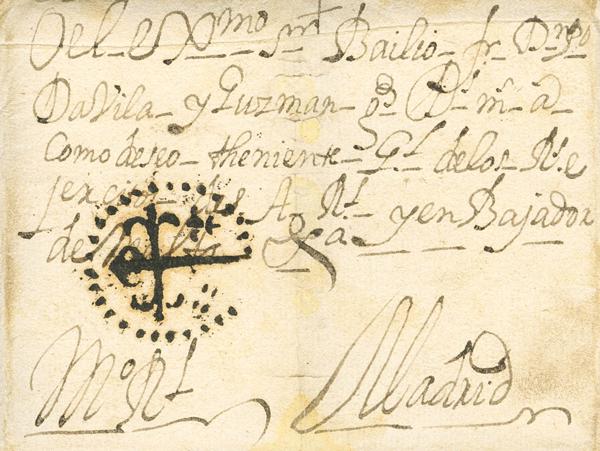 Al exmo sr Bailio fr Dn Po
Davila y Guzman gde Ds m a
Como deseo theniente Gl de los Rs e
jercitos A Rl y en Bajador
de Malta Ga
Mo Rl Madrid